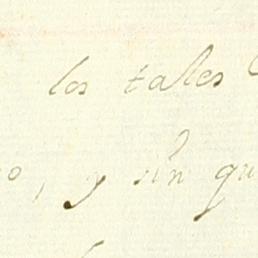 los tales
o, y sin qu